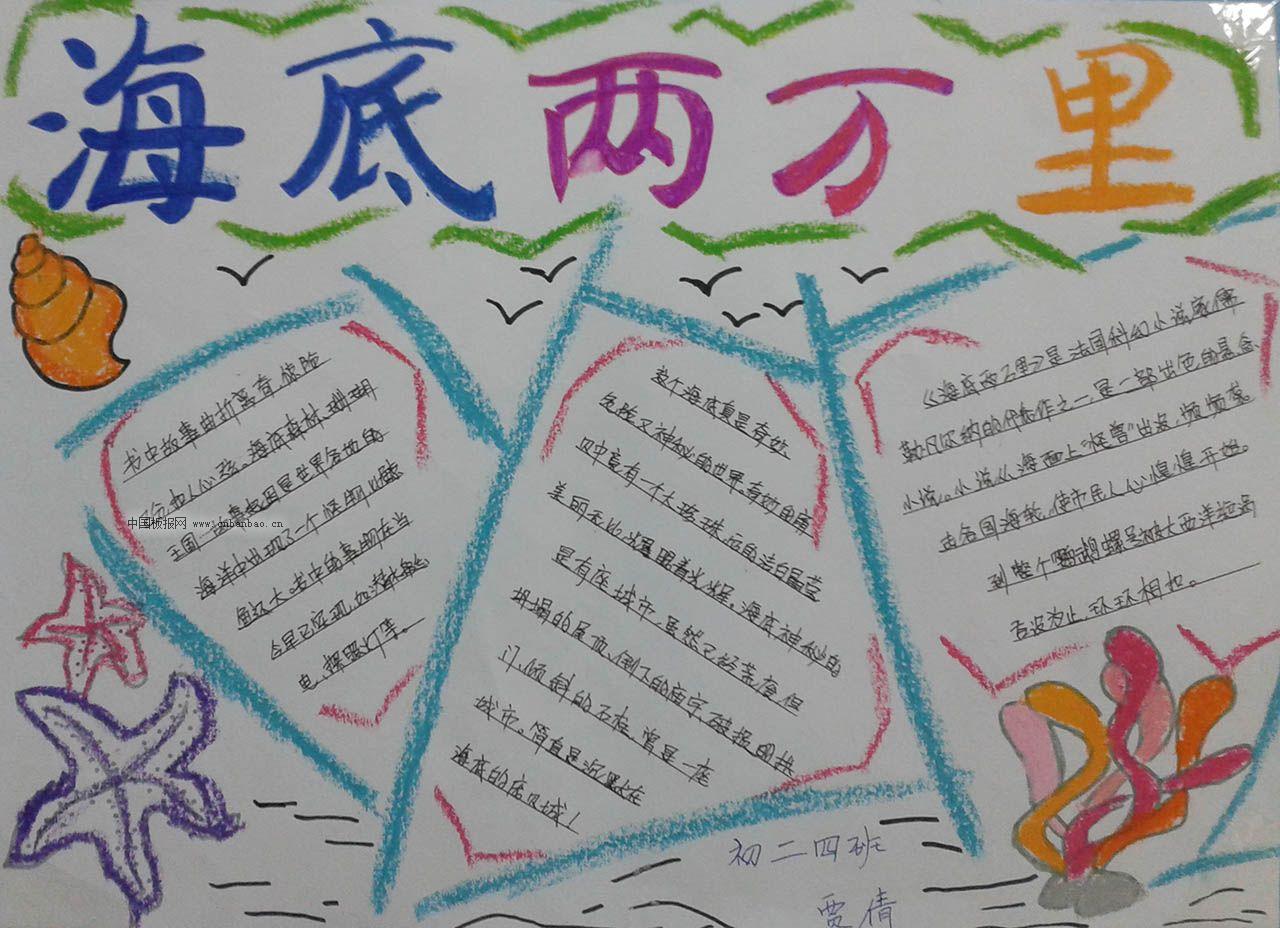 海底两万里
书中故事曲折富有惊险
扣人心弦。海底森林珊瑚
王国
中国板报网 www.cnbanbao.cn
海洋中出现了一个怪物
鱼还大。书中的事物在当
今早已实现,如潜水船
电,探照灯等。
整个海底真是奇妙,
危险又神秘的世界,有妙目库
贝中竟有一个大珍珠,
美丽无比,耀眼着光辉,海底神秘的
是有座城市,虽然已经荒废,但
坍塌的屋顶,倒下的庙宇,破损的拱
门,倾斜的石柱,曾是一座
城市。简直是沉默在
海底的庞贝城!
《海底两万里》是法国科幻小说威儒
勒凡尔纳的代表作之一,是一部出色的悬念
小说。小说从海面上“怪兽”出没,频频袭
击各国海轮,使市民人心惶惶开始。
到整个鹦鹉螺号被大西洋漩涡
吞没为止,环环相扣。
初二四班
贾倩